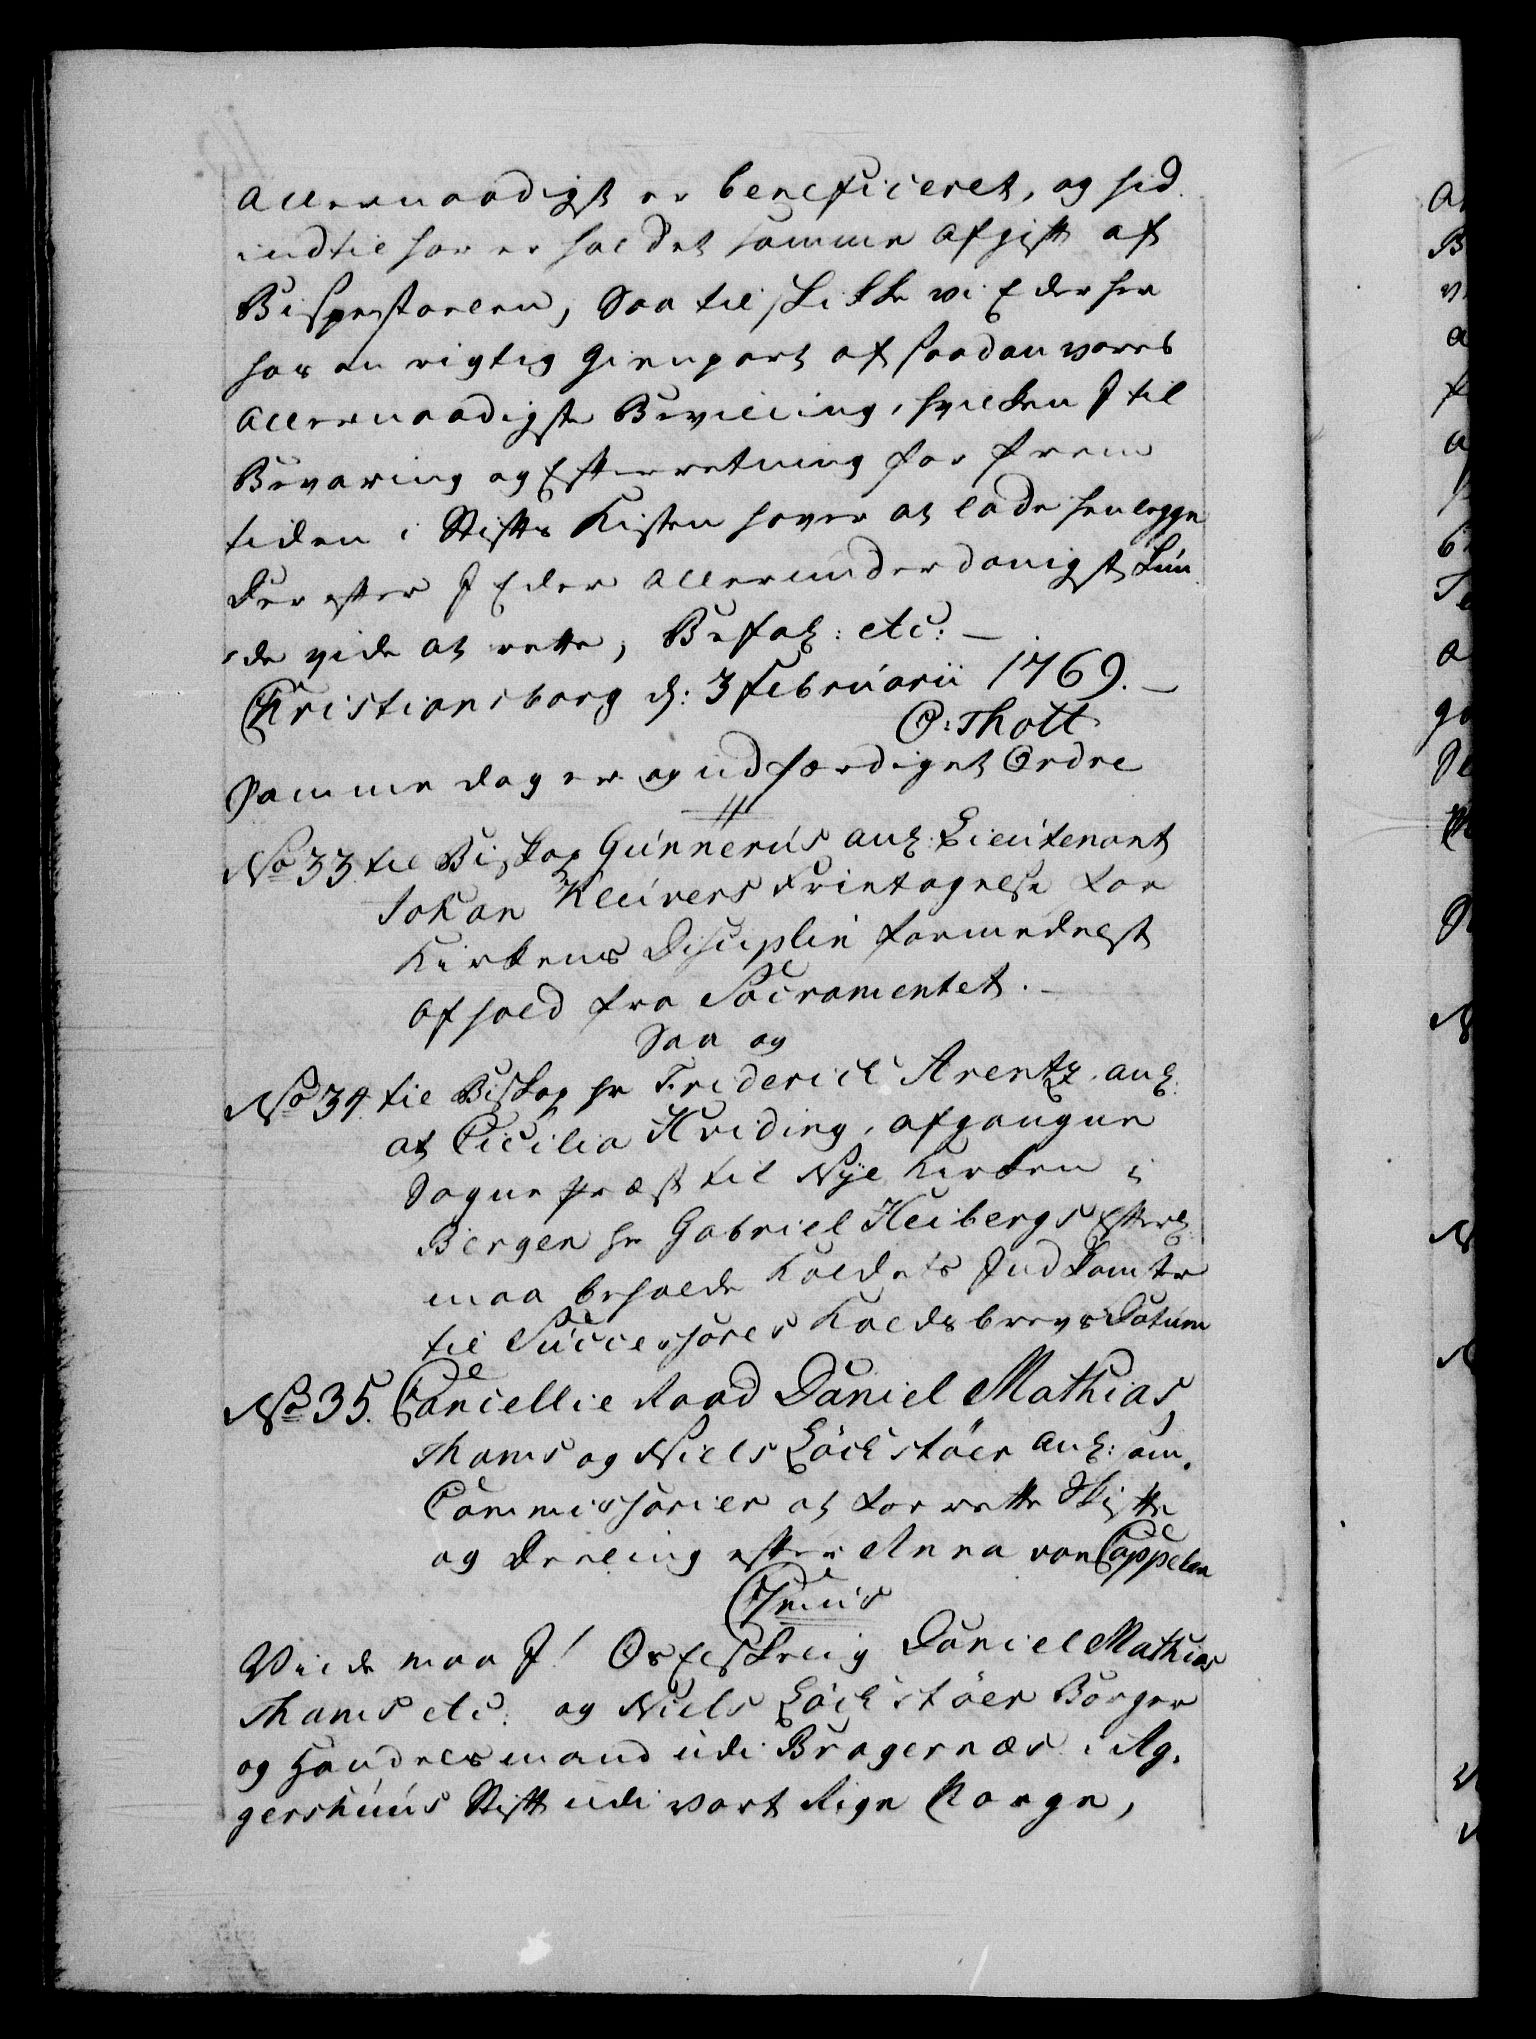 allernaadigst er beneficeret, og hid
indtil har erholdet samme Afgift af
Bispestoelen, Saa tilskikke vi Eder her
hos en rigtig Gienpart af saadan vores
allernaadigste Bevilling, hvilken I til
Bevaring og Efterretning for frem
tiden i Stifts Kisten haver at lade henlegge
Derefter I Eder allerunderdanigst kun
de vide at rette, Befal: etc: —
Christiansborg d: 3 Februarii 1769. —
O: Thott
Samme dag er og udfærdiget Ordre
No 33. til Biskop Gunnerus anl: Lieutenant
Johan Klüvers Fritagelse for
Kirkens Disciplin formedelst
Afhold fra Sacramentet. —
Saa og
No 34 til Biskop hr Friderich Arentz anl:
at Cicilia Hviding, afgangne
Sogne Præst til Nye Kirken i
Bergen hr Gabriel Heibergs Efterl:
maa beholde Kaldets Indkomster
til Successores Kaldsbrevs Datum
No 35. Cancellie Raad Daniel Mathias
Thams og Niels Löchstöer anl: om
Commissarier at forrette Skifte
og Deeling efter Anna von Cappelen
Chr: 7mus
Viide maa I! Os Elskelig Daniel Mathias
Thams etc: og Niels Löchstöer Borger
og Handelsmand udi Bragernæs i Ag,
gershuus Stift udi vort Rige Norge,